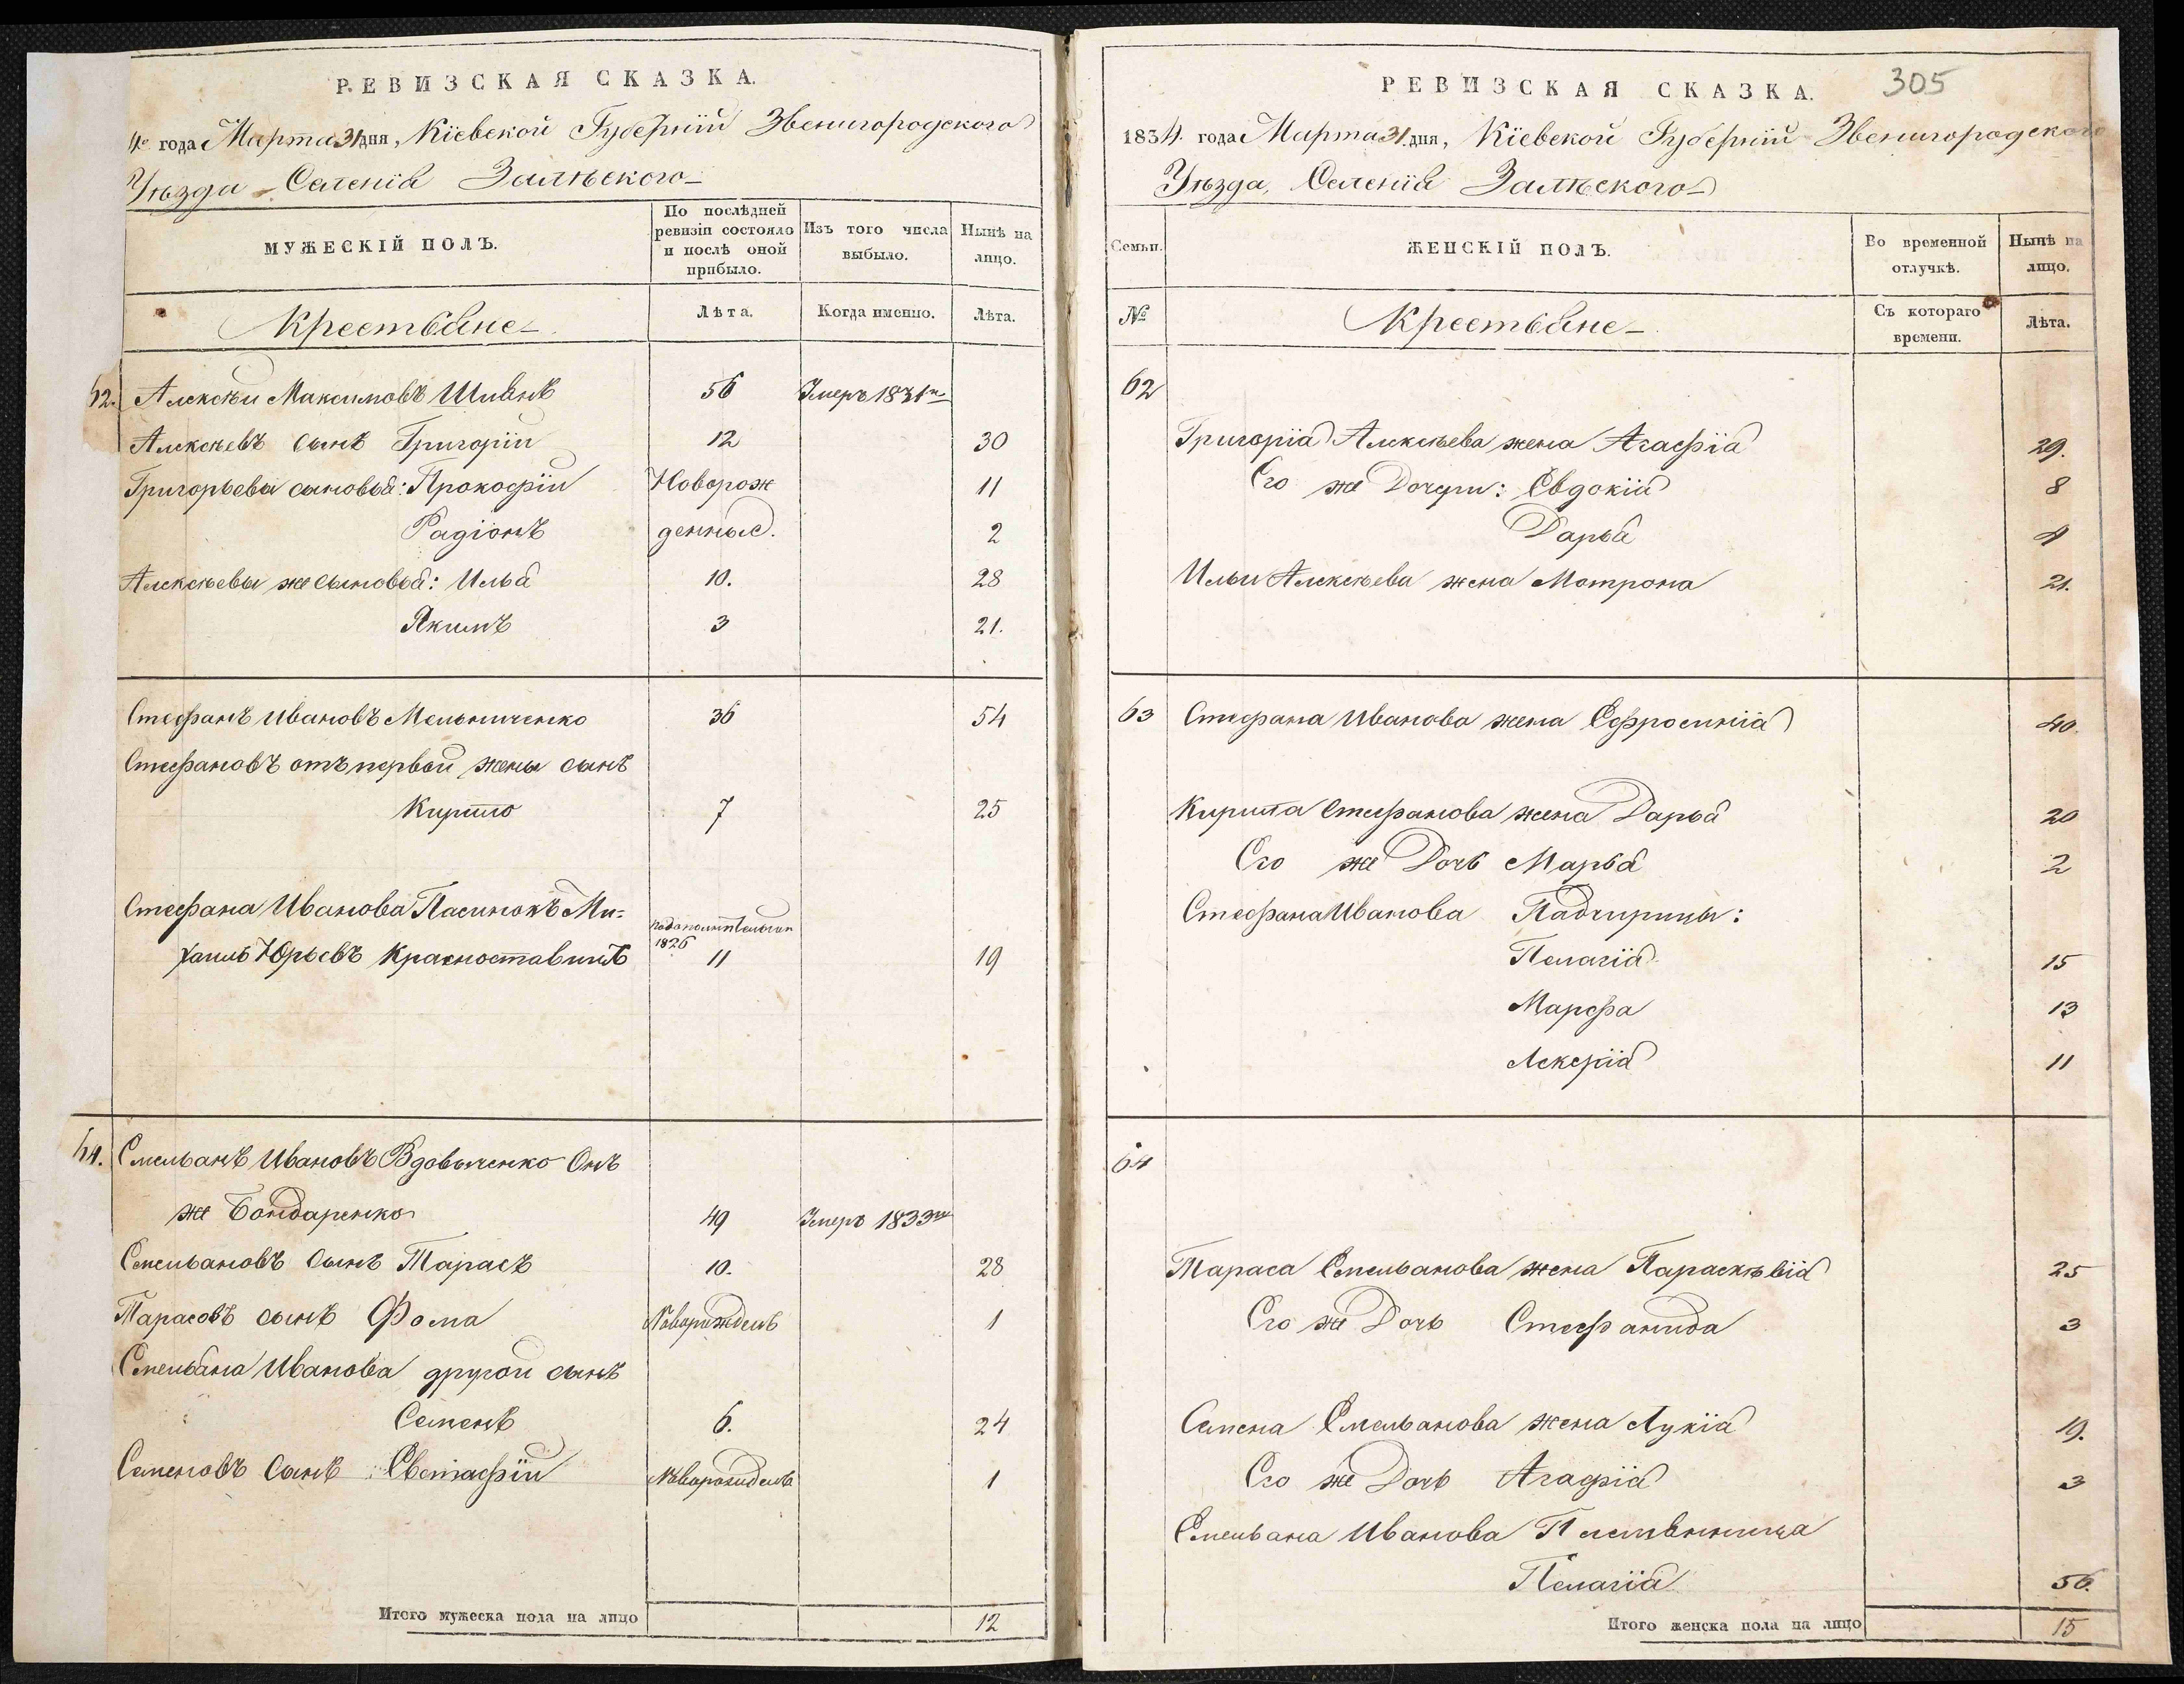 РЕВИЗСКАЯ СКАЗКА.
4го года Марта 31 дня, Кіевской Губерніи Звенигородского
Уѣзда Селенія Залѣского
МУЖЕСКІЙ ПОЛЪ.
По послѣдней ревизіи состояло и послѣ оной прибыло.
Изъ того числа выбыло.
Нынѣ на лицо.
Крестьяне
Лѣта.
Когда именно.
Лѣта.
62. Алексѣй Максимовъ 56 Умеръ 1831го
Алексѣевъ сынъ Григорій 12 30
Григорьевы сыновья: Прокофій Новорож 11
Радіонъ денные. 2
Алексѣевы же сыновья: Илья 10. 28
Якимъ 3 21.
Стефанъ Ивановъ Мельниченко 36 54
Стефановъ отъ первой жены сынъ
Кирило 7 25
Стефана Иванова Пасинокъ Ми-
1826
хаилъ Юрьевъ Красноставинъ 11 19
64. Емельянъ Ивановъ Вдовыченко Онъ
же Бондаренко 49 Умеръ 1833го
Емельяновъ сынъ Тарасъ 10. 28
Тарасовъ сынъ Фома Новорожденъ 1
Емельяна Иванова другой сынъ
Семенъ 6. 24
Семеновъ сынъ Евстафій Новорожденъ 1
Итого мужеска пола на лицо 12
РЕВИЗСКАЯ СКАЗКА. 305
1834. года Марта 31. дня, Кіевской Губерніи Звенигородского
Уѣзда, Селенія Залѣского
Семьи.
ЖЕНСКІЙ ПОЛЪ.
Во временной отлучкѣ.
Нынѣ на лицо.
№
Крестьяне
Съ котораго времени.
Лѣта.
62
Григорія Алексѣева жена Агафія 29.
Его же Дочери: Евдокія 8
Дарья 4
Ильи Алексѣева жена Мотрона 21.
63 Стефана Иванова жена Ефросинія 40.
Кирила Стефанова жена Дарья 20
Его же Дочь Марья 2
Стефана Иванова Падчирицы:
Пелагія 15
Марфа 13
Лекерія 11
64
Тараса Емельянова жена Параскѣвія 25
Его же Дочь Стефанида 3
Семена Емельянова жена Лукія 19.
Его же Дочь Агафія 3
Емельяна Иванова Племянница
Пелагія 56.
Итого женска пола на лицо 15